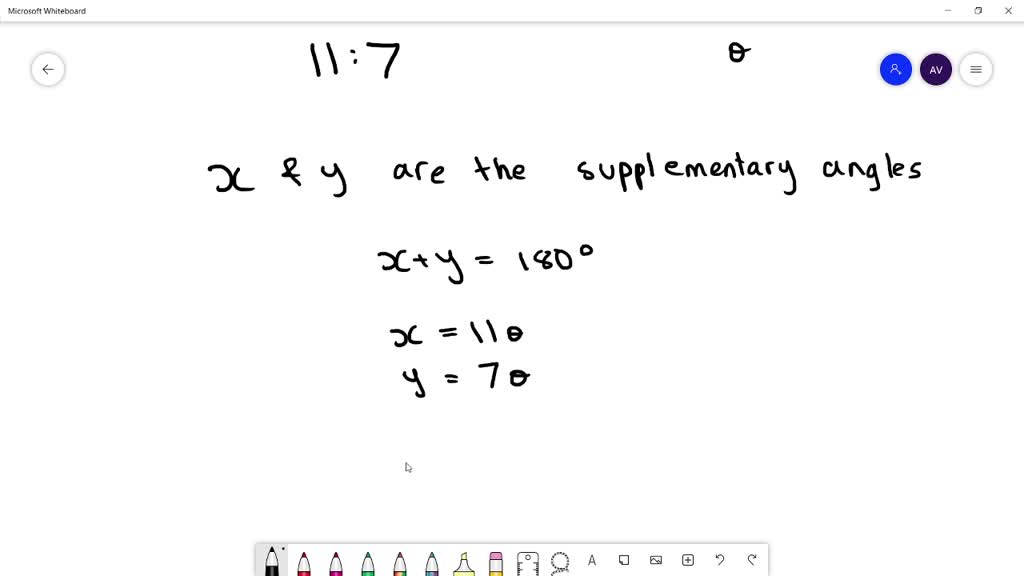 Microsoft Whiteboard
11:7 θ
AV
x & y are the supplementary angles
x + y = 180°
x = 11θ
y = 7θ
A